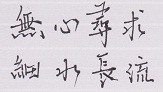 無心尋求
細水長流